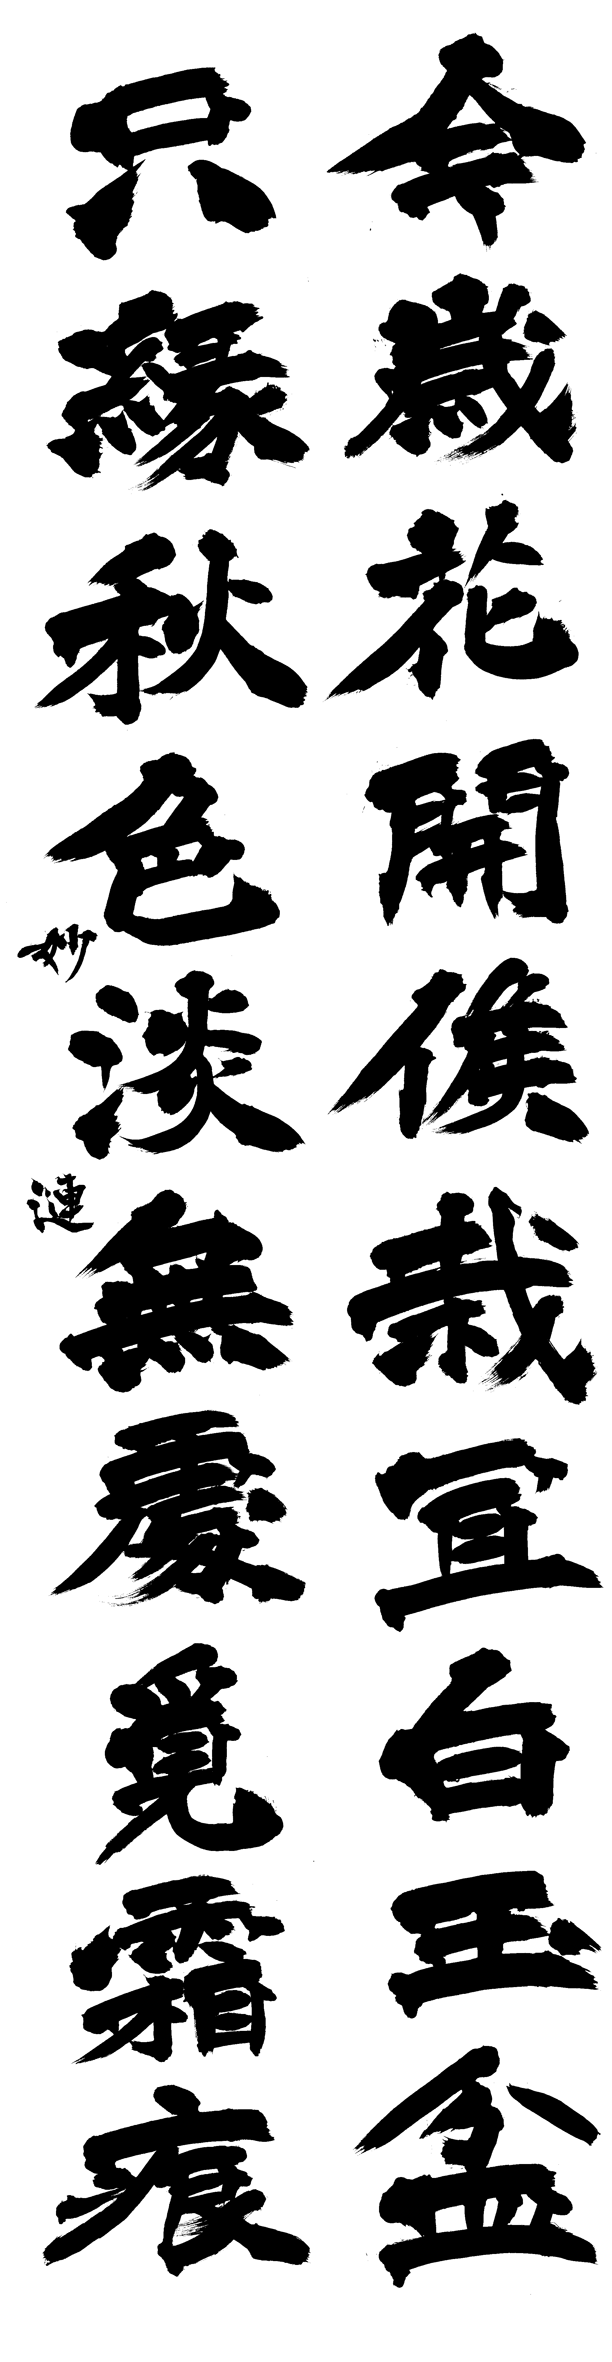 今歲花開候栽宜白玉盆
只緣秋色淡無處覓霜痕
妙漣